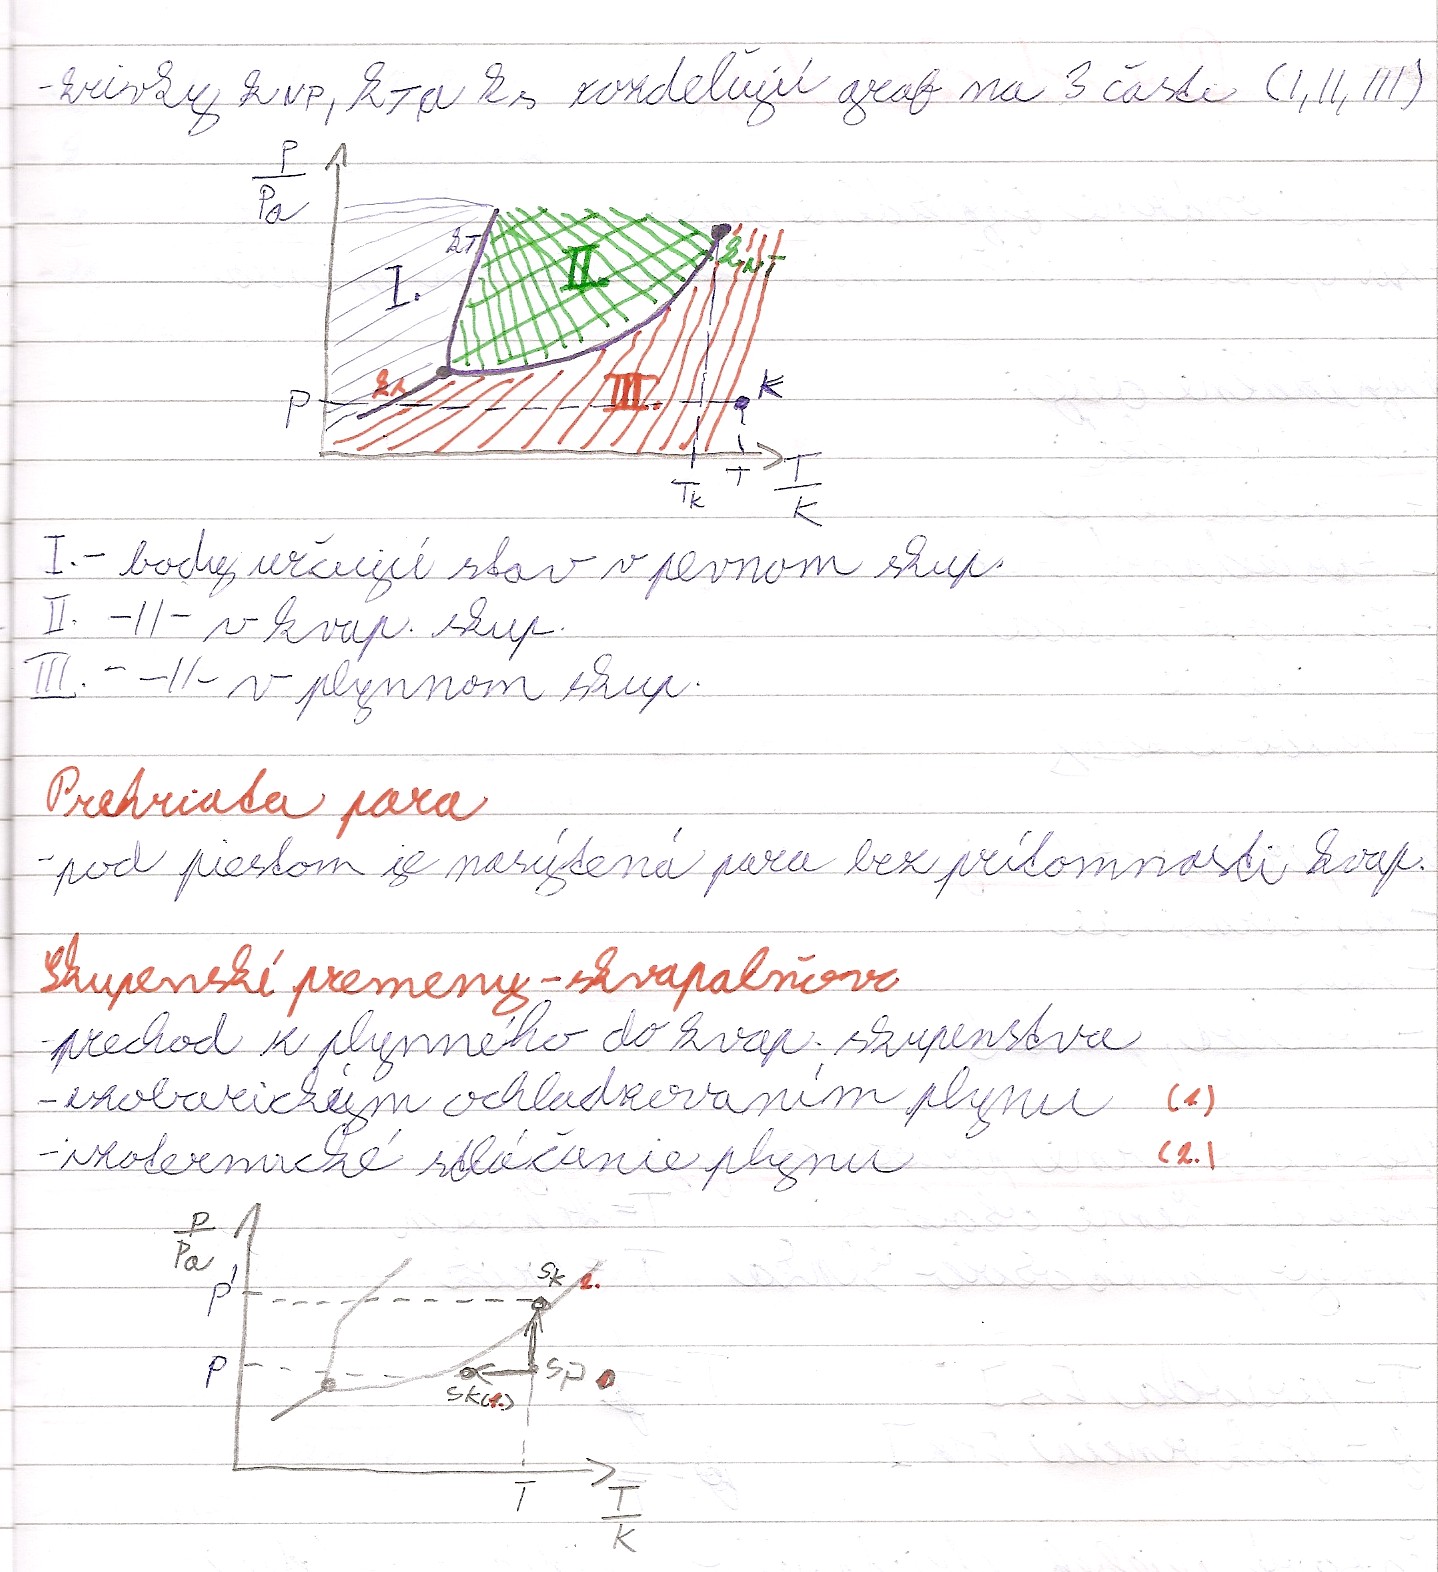 -krivky kNP, kT a ks rozdeľujú graf na 3 časti (I, II, III)
P
Pa
kT
I.
II.
kNP
ks
III.
K
P
Tk
T
T
K
I.- body určujú stav v pevnom skup.
II. -II- v kvap. skup.
III. - -II- v plynnom skup.
Prehriata para
-pod piestom je nasýtená para bez prítomnosti kvap.
Skupenské premeny - skvapalňov
-prechod z plynného do kvap. skupenstva
-izobarickým ochladzovaním plynu (1)
-izotermické stláčanie plynu (2.)
P
Pa
P'
Sk 2.
P
Sp
Sk(1.)
T
T
K